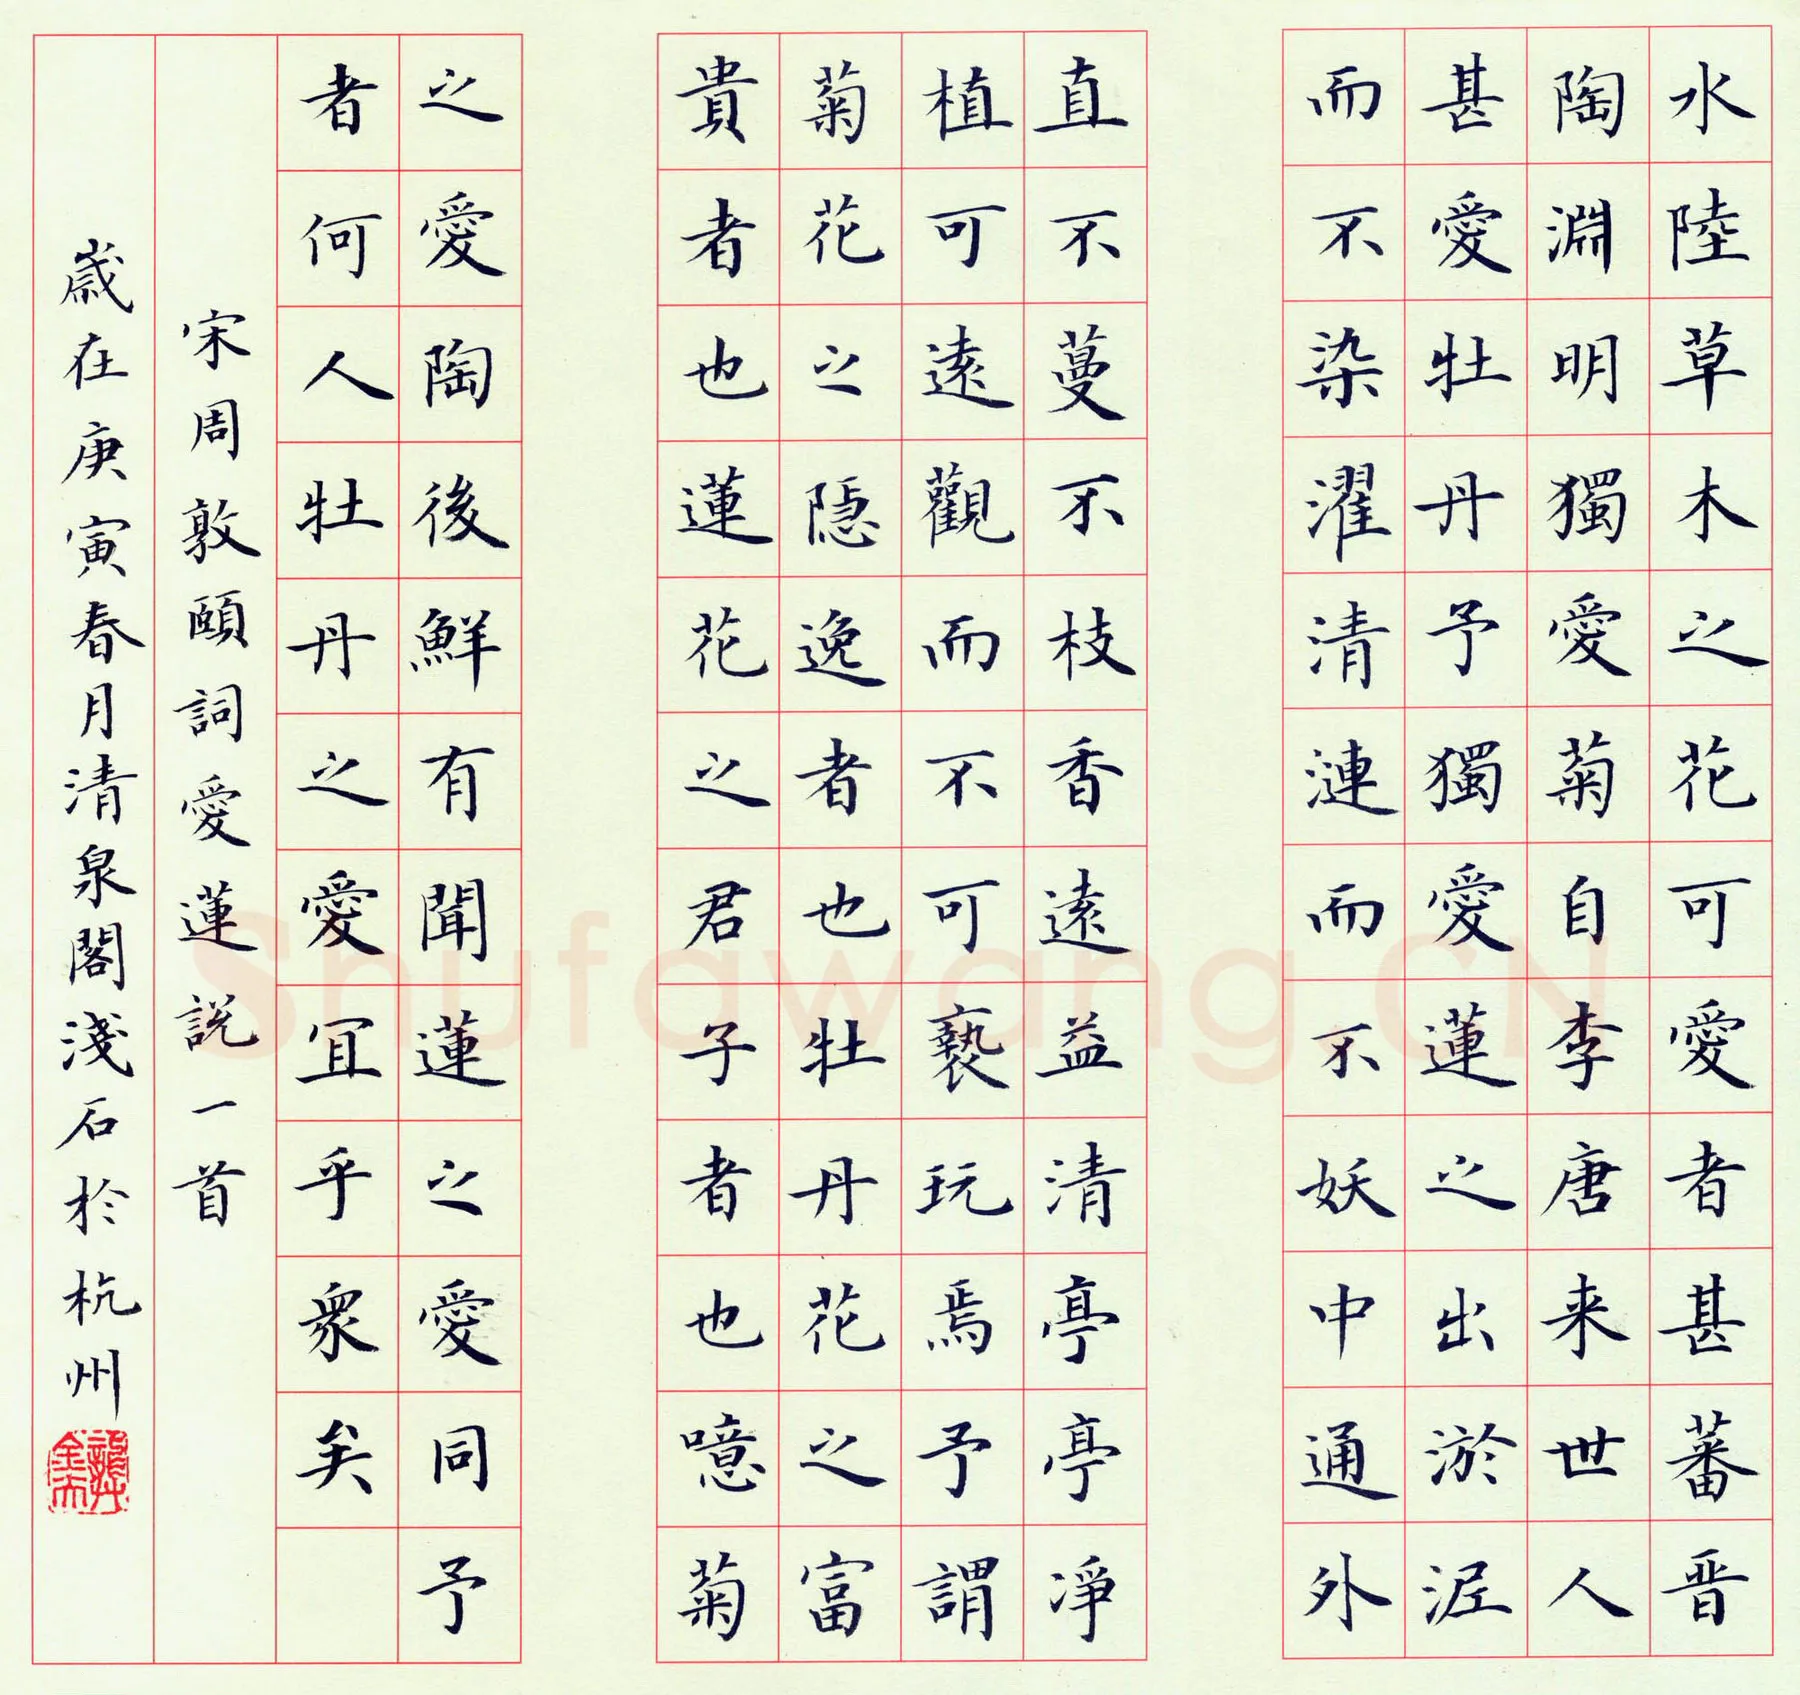 水陸草木之花可愛者甚蕃晋
陶淵明獨愛菊自李唐来世人
甚愛牡丹予獨愛蓮之出淤泥
而不染濯清漣而不妖中通外
直不蔓不枝香遠益清亭亭淨
植可遠觀而不可褻玩焉予謂
菊花之隱逸者也牡丹花之富
貴者也蓮花之君子者也噫菊
之愛陶後鮮有聞蓮之愛同予
者何人牡丹之愛宜乎衆矣
宋周敦頤詞愛蓮説一首
歲在庚寅春月清泉閣淺石於杭州
Shufawang.CN